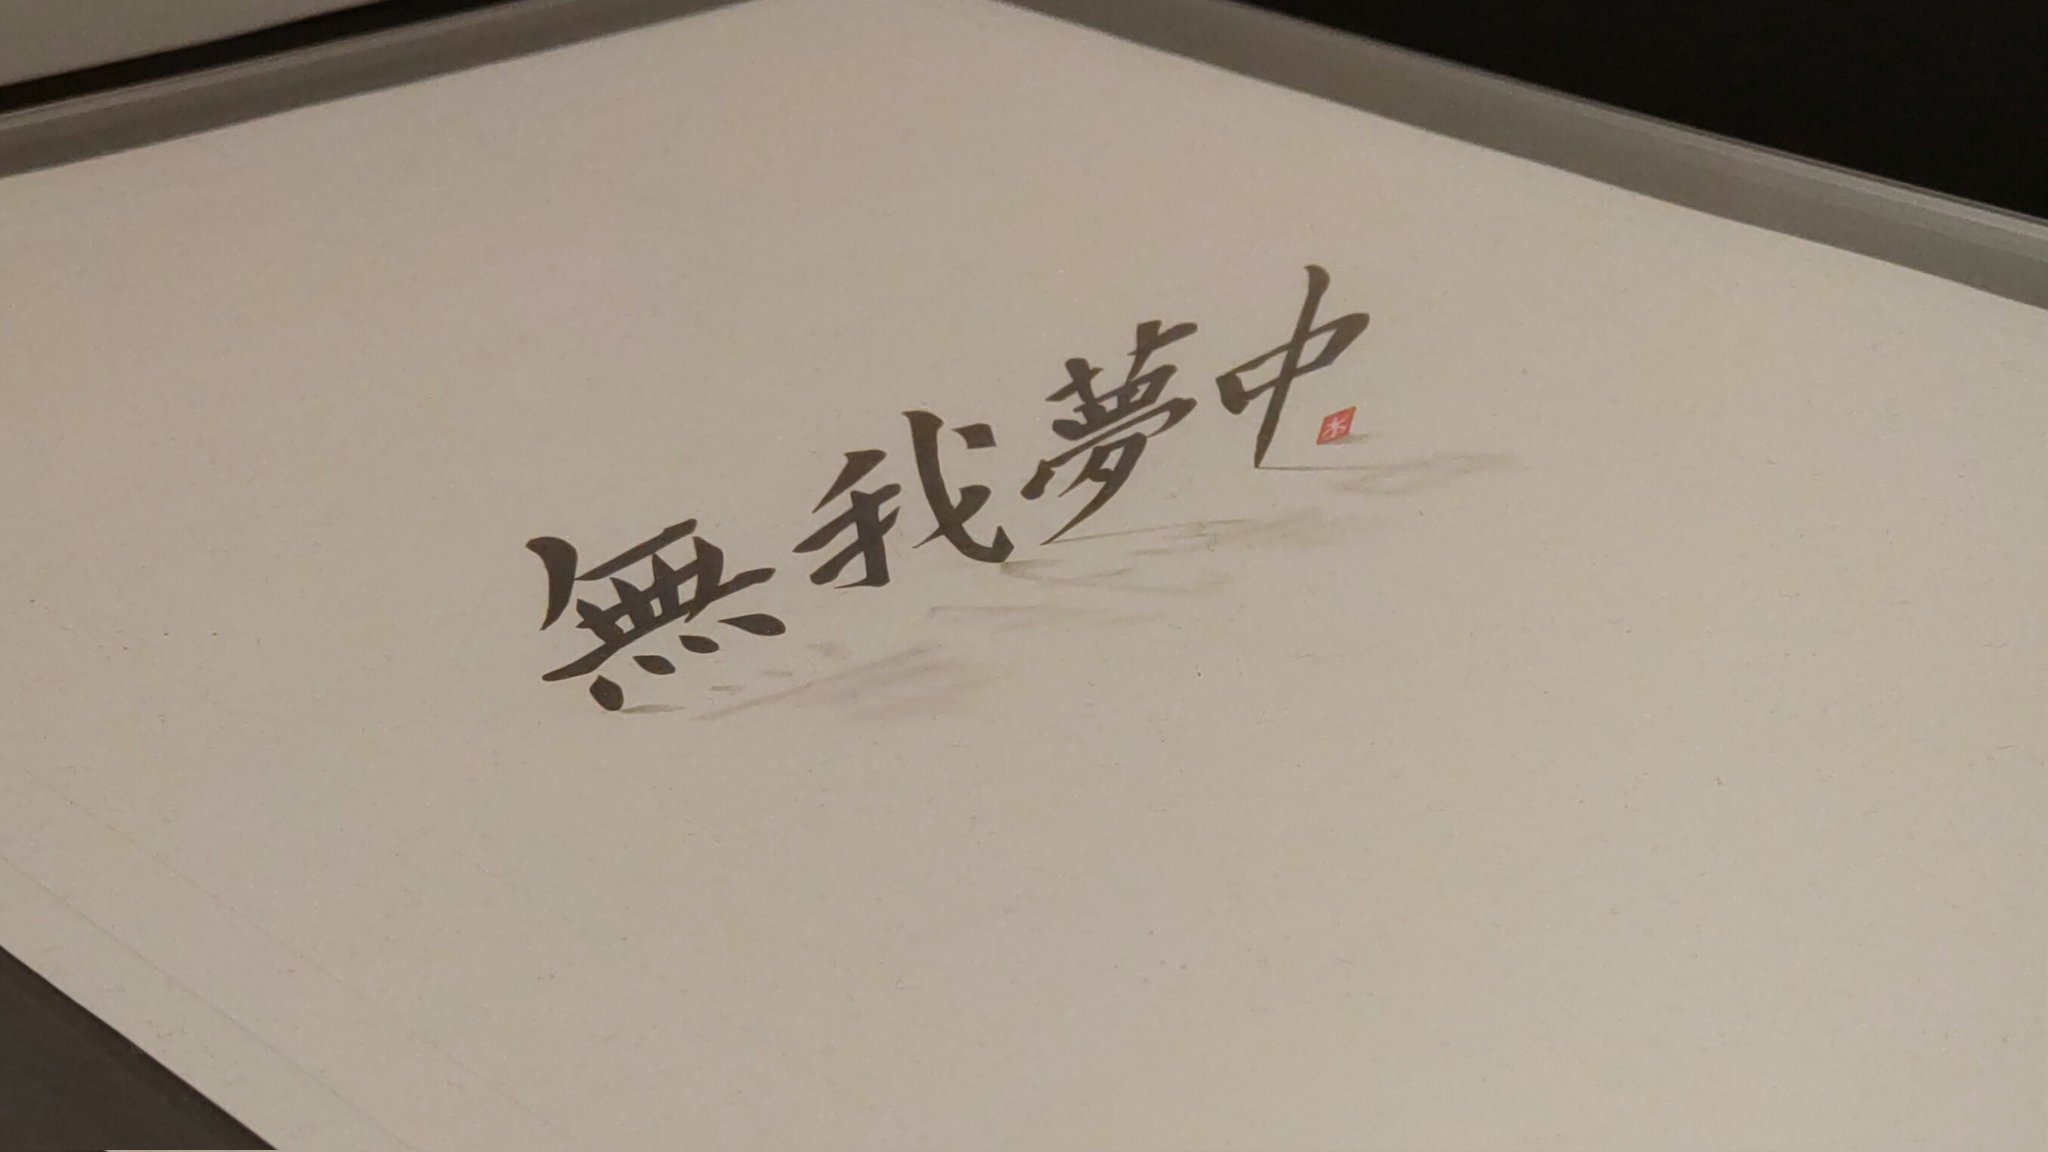 無我夢中